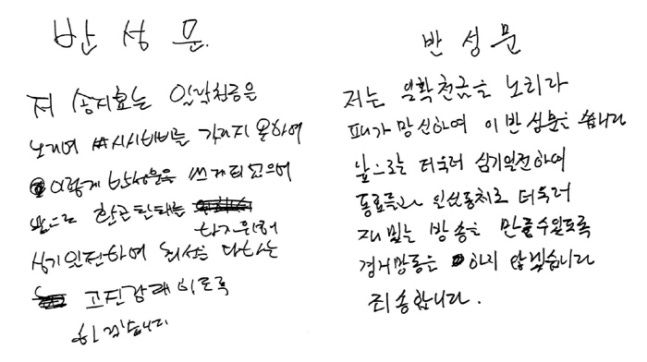 반성문.
저 송지효는 일확천금은
노리며 시시비비를 가리지 못하여
이렇게 반성문을 쓰게 되었으며
앞으로
하기위해
심기일전하여 최선을 다하는
고진감래 이도록
하겠습니다
반성문
저는 일확천금을 노리다
패가망신하여 이 반성문을 씁니다
앞으로는 더욱더 심기일전하여
동료들과 일심동체로 더욱더
재밌는 방송을 만들수있도록
경거망동은 하지 않겠습니다
죄송합니다.